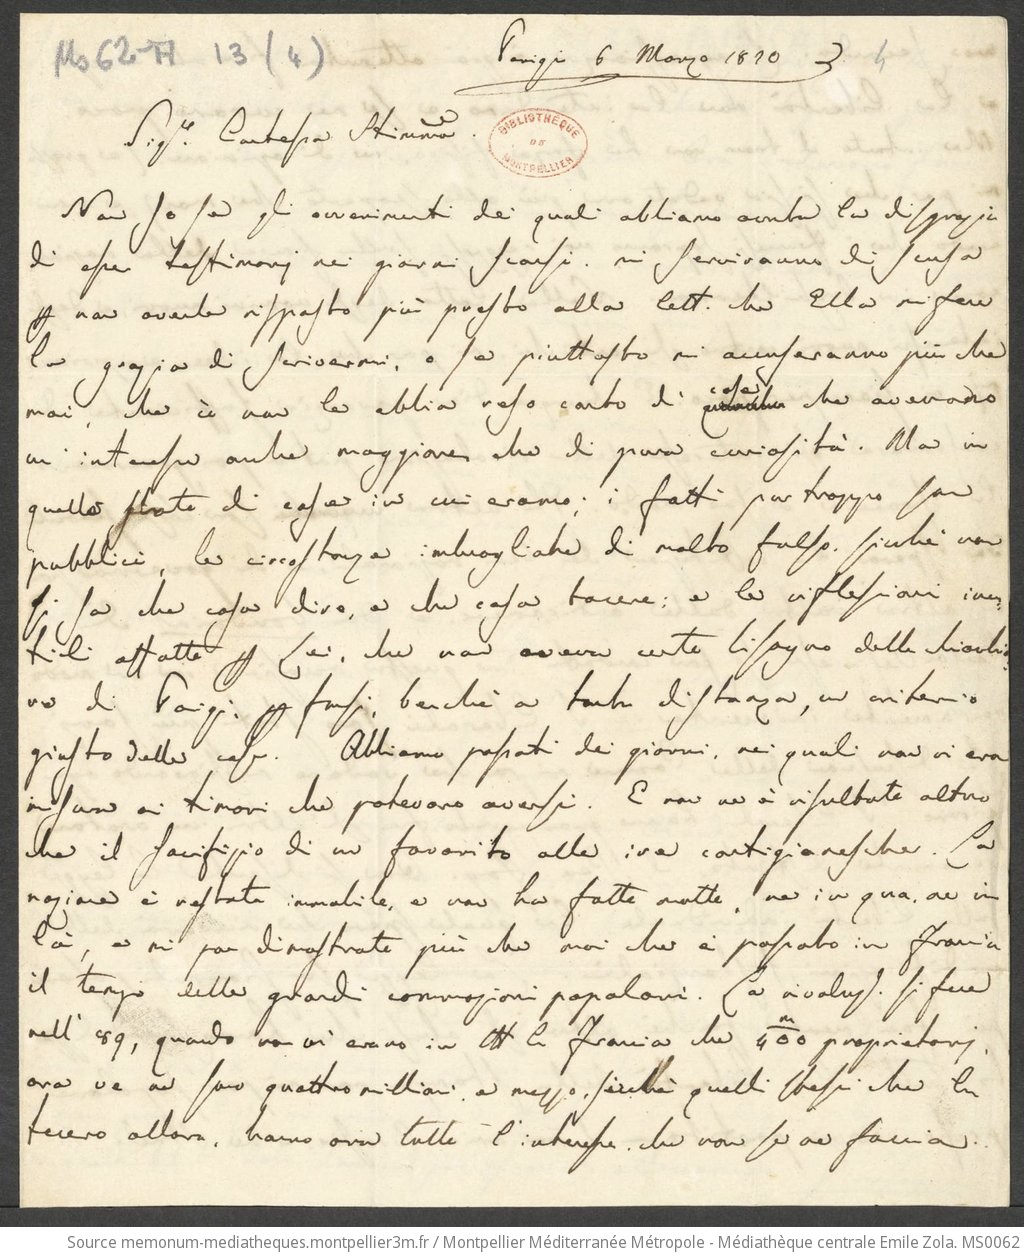 Ms 62-A 13 (4)
Parigi 6 Marzo 1820
4
Sig.ra Contessa Stimma.
BIBLIOTHEQUE DE MONTPELLIER
Non so se gli avvenimenti dei quali abbiamo avuta la disgrazia
di esser testimonj nei giorni scorsi. mi serviranno di scusa
p non averle risposto più presto alla lett. che Ella mi fece
la grazia di scrivermi, o se piuttosto mi accuseranno più che
mai, che io non le abbia reso conto di cose che avevano
un' interesse anche maggiore che di pura curiosità. Ma in
quello stato di cose in cui eramo; i fatti pur troppo son
pubblici, le circostanze imbrogliate di molto falso. sicchè non
si sa che cosa dire, e che cosa tacere; e le riflessioni inu-
tili affatto p Lei, che non aveva certo bisogno delle chiacchie
re di Parigi, p farsi, benchè a tanta distanza, un criterio
giusto delle cose. Abbiamo passati dei giorni, nei quali non vi era
misura ai timori che potevano aversi. E non ne è risultato altro
che il sacrifizio di un favorito alle ire cortigianesche. La
nazione è restata immobile, e non ha fatto motto, ne in qua, ne in
là, e mi par dimostrato più che mai che è passato in Francia
il tempo delle grandi commozioni popolari. La rivoluz. si fece
nell' 89, quando non vi erano in tt la Francia che 400 m proprietarj,
ora ve ne son quattro milioni e mezzo, sicchè quelli stessi che la
fecero allora, hanno ora tutto l'interesse, che non se ne faccia.
Source memonum-mediatheques.montpellier3m.fr / Montpellier Méditerranée Métropole - Médiathèque centrale Emile Zola. MS0062